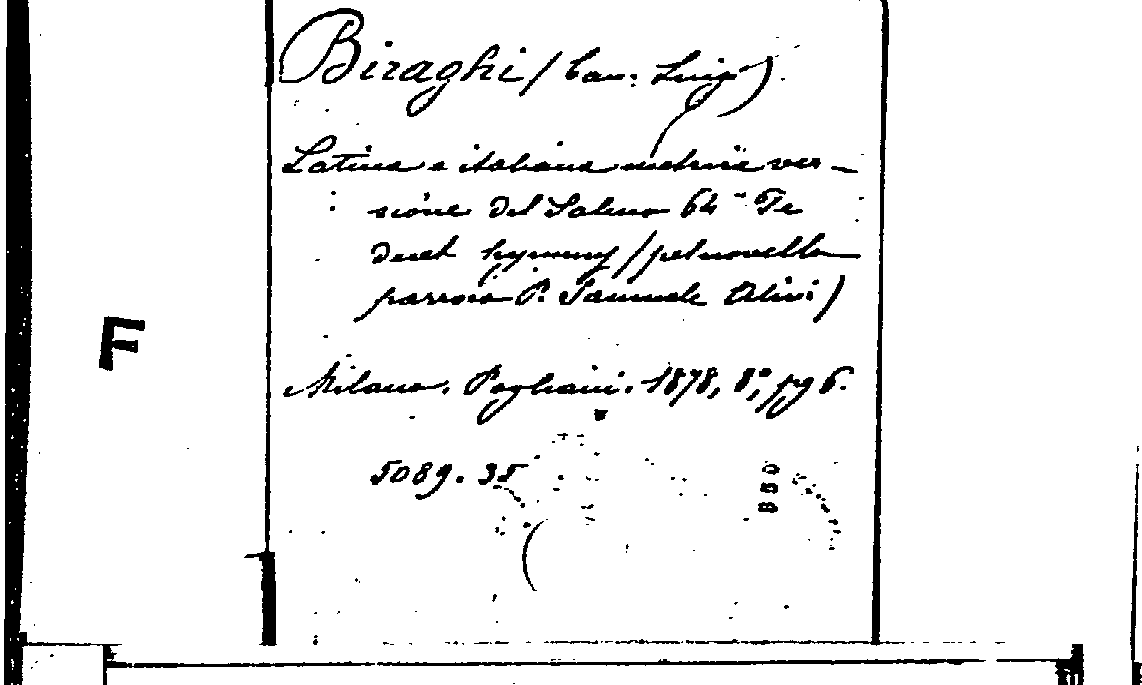 Biraghi (Can. Luigi)
Latina e italiana metrica ver-
sione del Salmo 64 - Te
decet hymnus (pel novello
parroco P. Samuele Alivi)
Milano. Pogliani. 1878, 8°, pg 6.
5089. 35
F